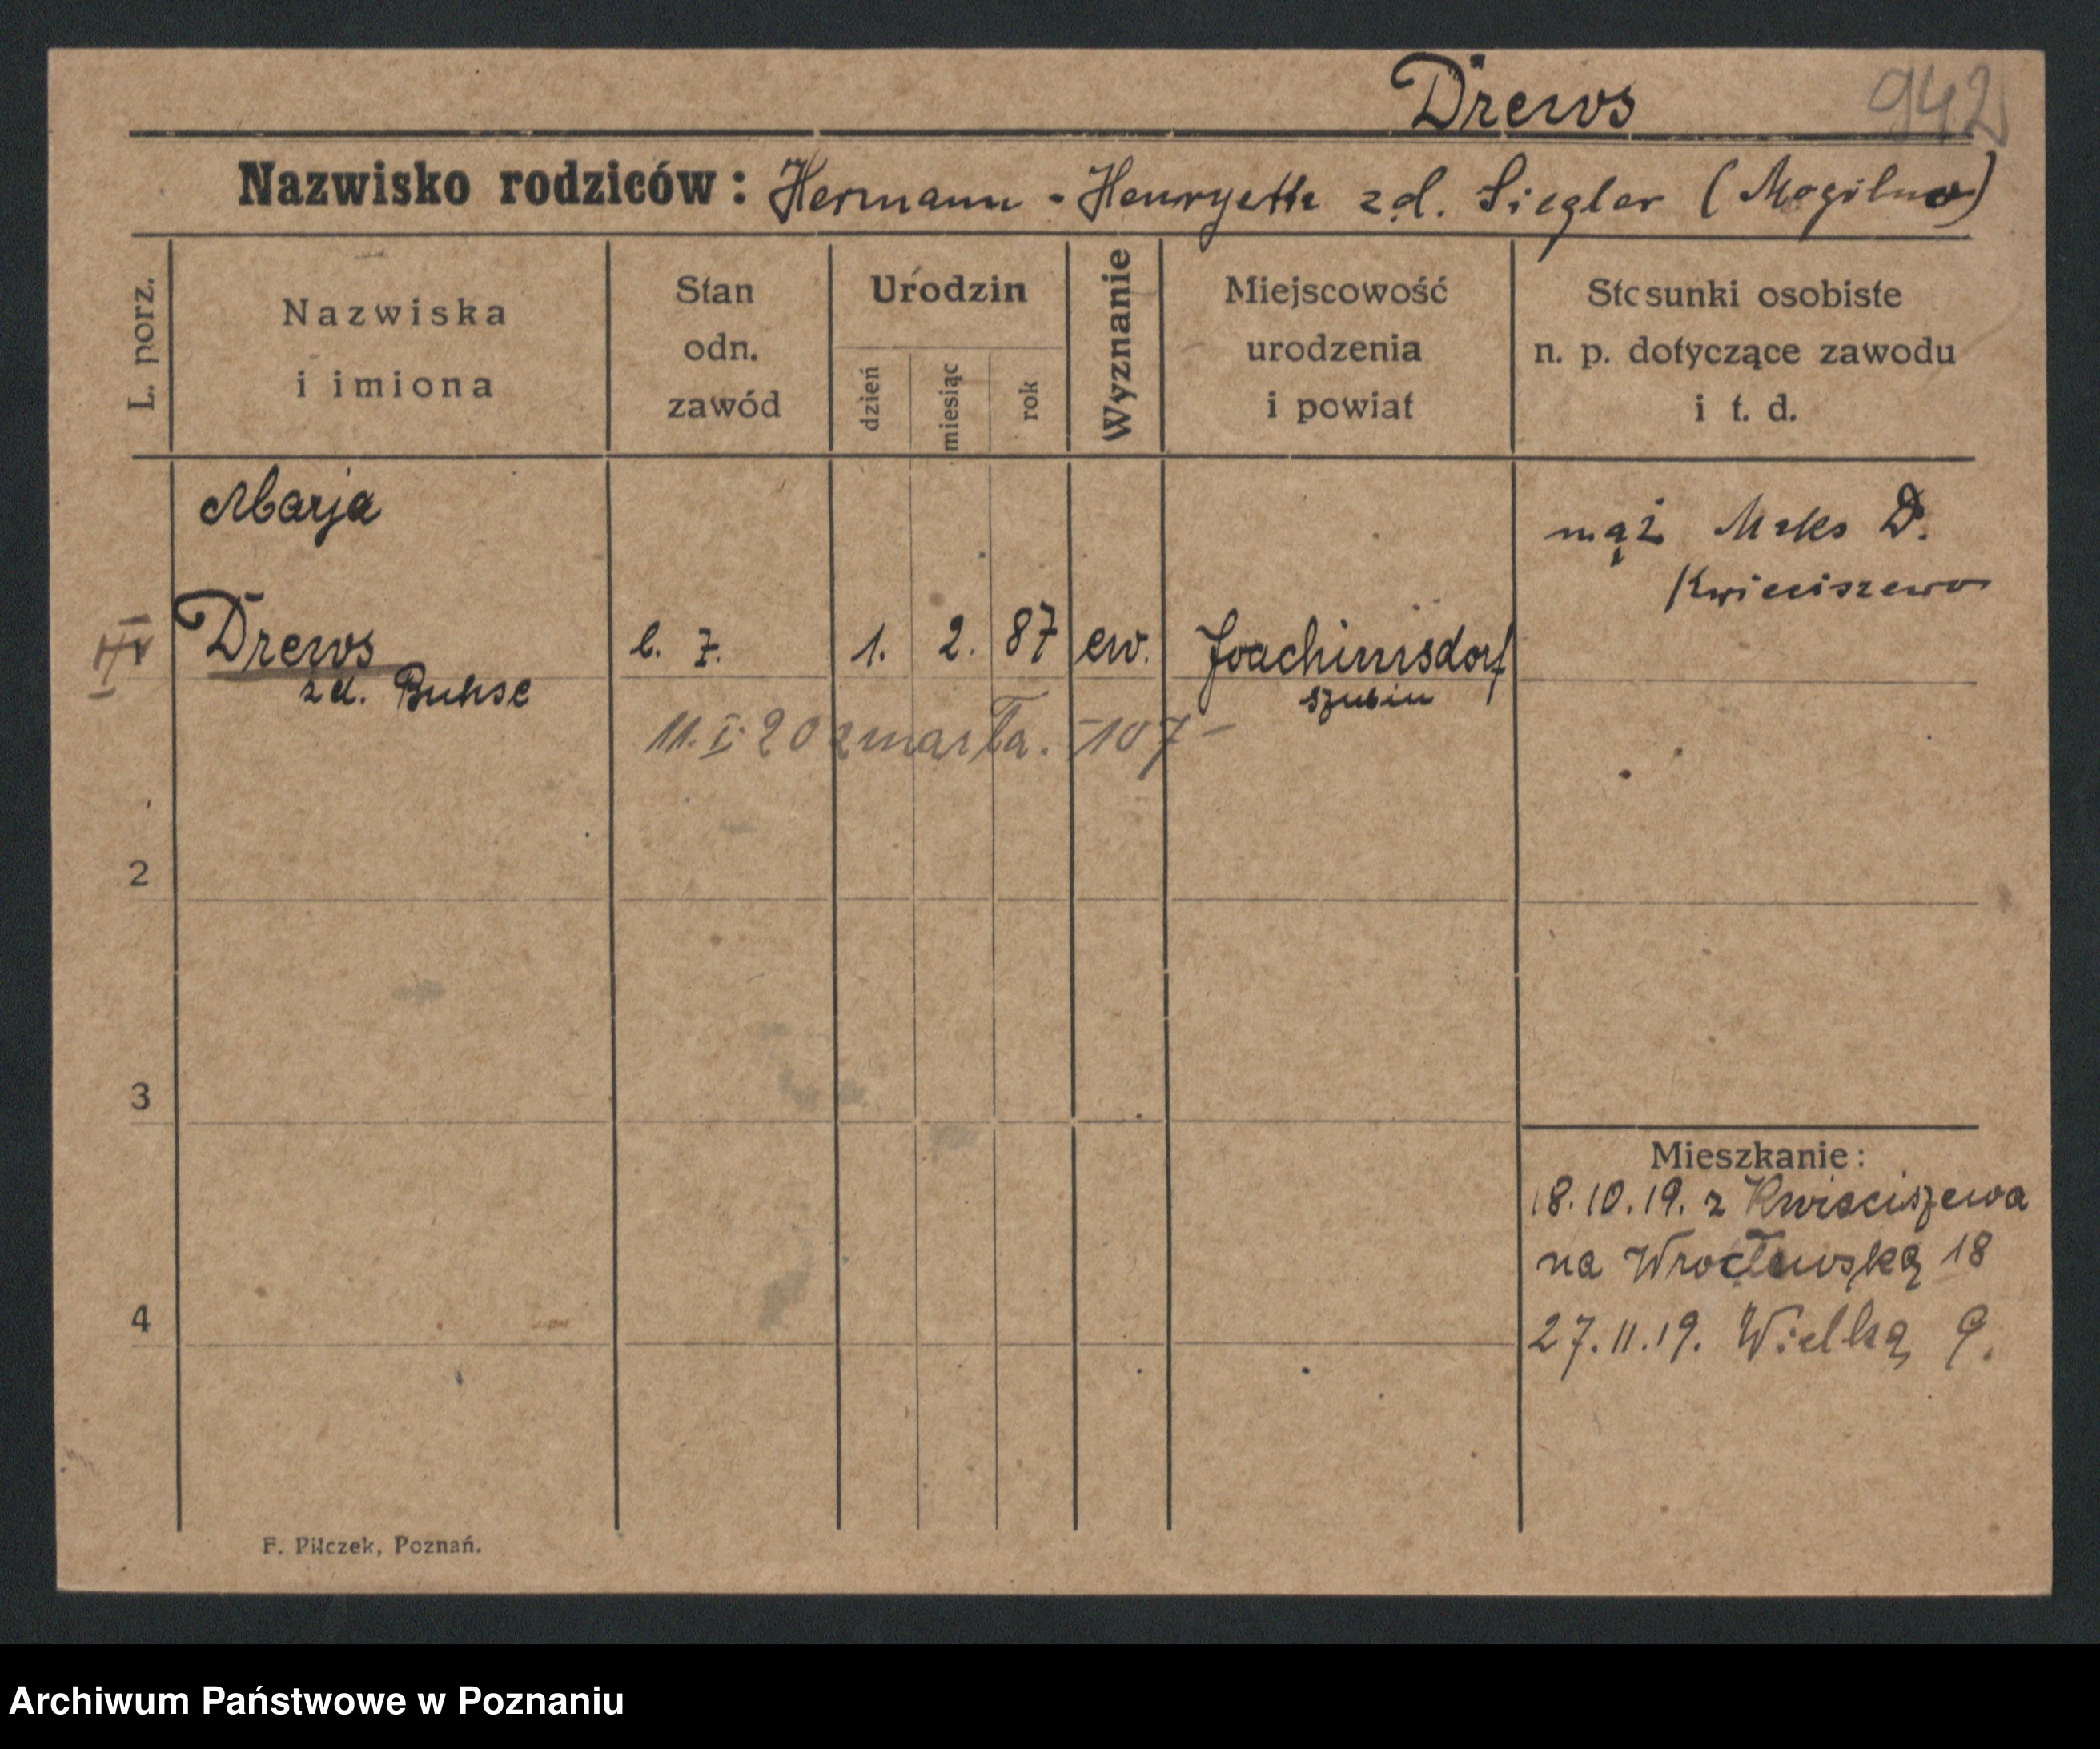 Drews 942
Nazwisko rodziców: Hermann - Henryette zd. Siegler (Mogilno)
L. porz.
Nazwiska
i imiona
Stan
odn.
zawód
Urodzin
dzień
miesiąc
rok
Wyznanie
Miejscowość
urodzenia
i powiat
Stosunki osobiste
n. p. dotyczące zawodu
i t. d.
Marja
mąż Maks D.
Kwieciszewo
Drews b. z. 1. 2. 87 ew. Joachimsdorf
zd. Buhse Szubin
11. I. 20 zmarła. -107-
2
3
Mieszkanie:
18.10.19. z Kwieciszewa
na Wrocławską 18
4
27.11.19. Wielką 9.
F. Pilczek, Poznań.
Archiwum Państwowe w Poznaniu